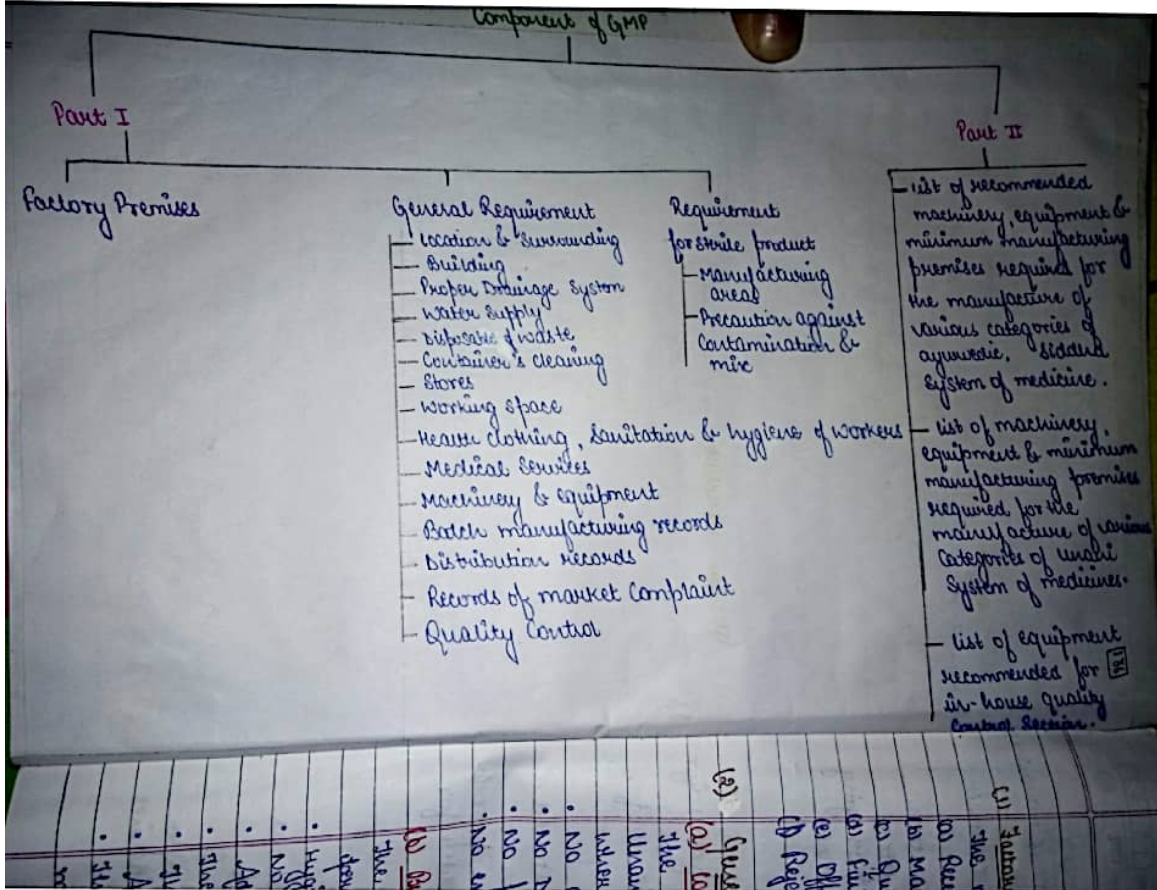 Component of GMP
Part I
Factory Premises
General Requirement
Location & Surrounding
Building
Proper Drainage System
Water Supply
Disposable of waste
Container's cleaning
Stores
Working space
Health clothing, Sanitation & hygiene of workers
Medical Services
Machinery & equipment
Batch manufacturing records
Distribution records
Records of market Complaint
Quality Control
Requirement
for sterile product
Manufacturing
areas
Precaution against
Contamination &
mix
Part II
List of recommended
machinery, equipment &
minimum manufacturing
premises required for
the manufacture of
various categories of
ayurvedic, Siddha
System of medicine.
List of machinery,
equipment & minimum
manufacturing premises
required for the
manufacture of various
Categories of unani
System of medicines.
List of equipment
recommended for
in-house quality
Control Section.
(1)
The
(a) Rec
(b) Ma
(c) Qu
(d) Fin
(e) Off
(f) Rej
(2) Gene
(a) Lo
The
whe
No
No
No
No e
(b) Bu
The
Hyg
No
Ad
The
Th
A
Th